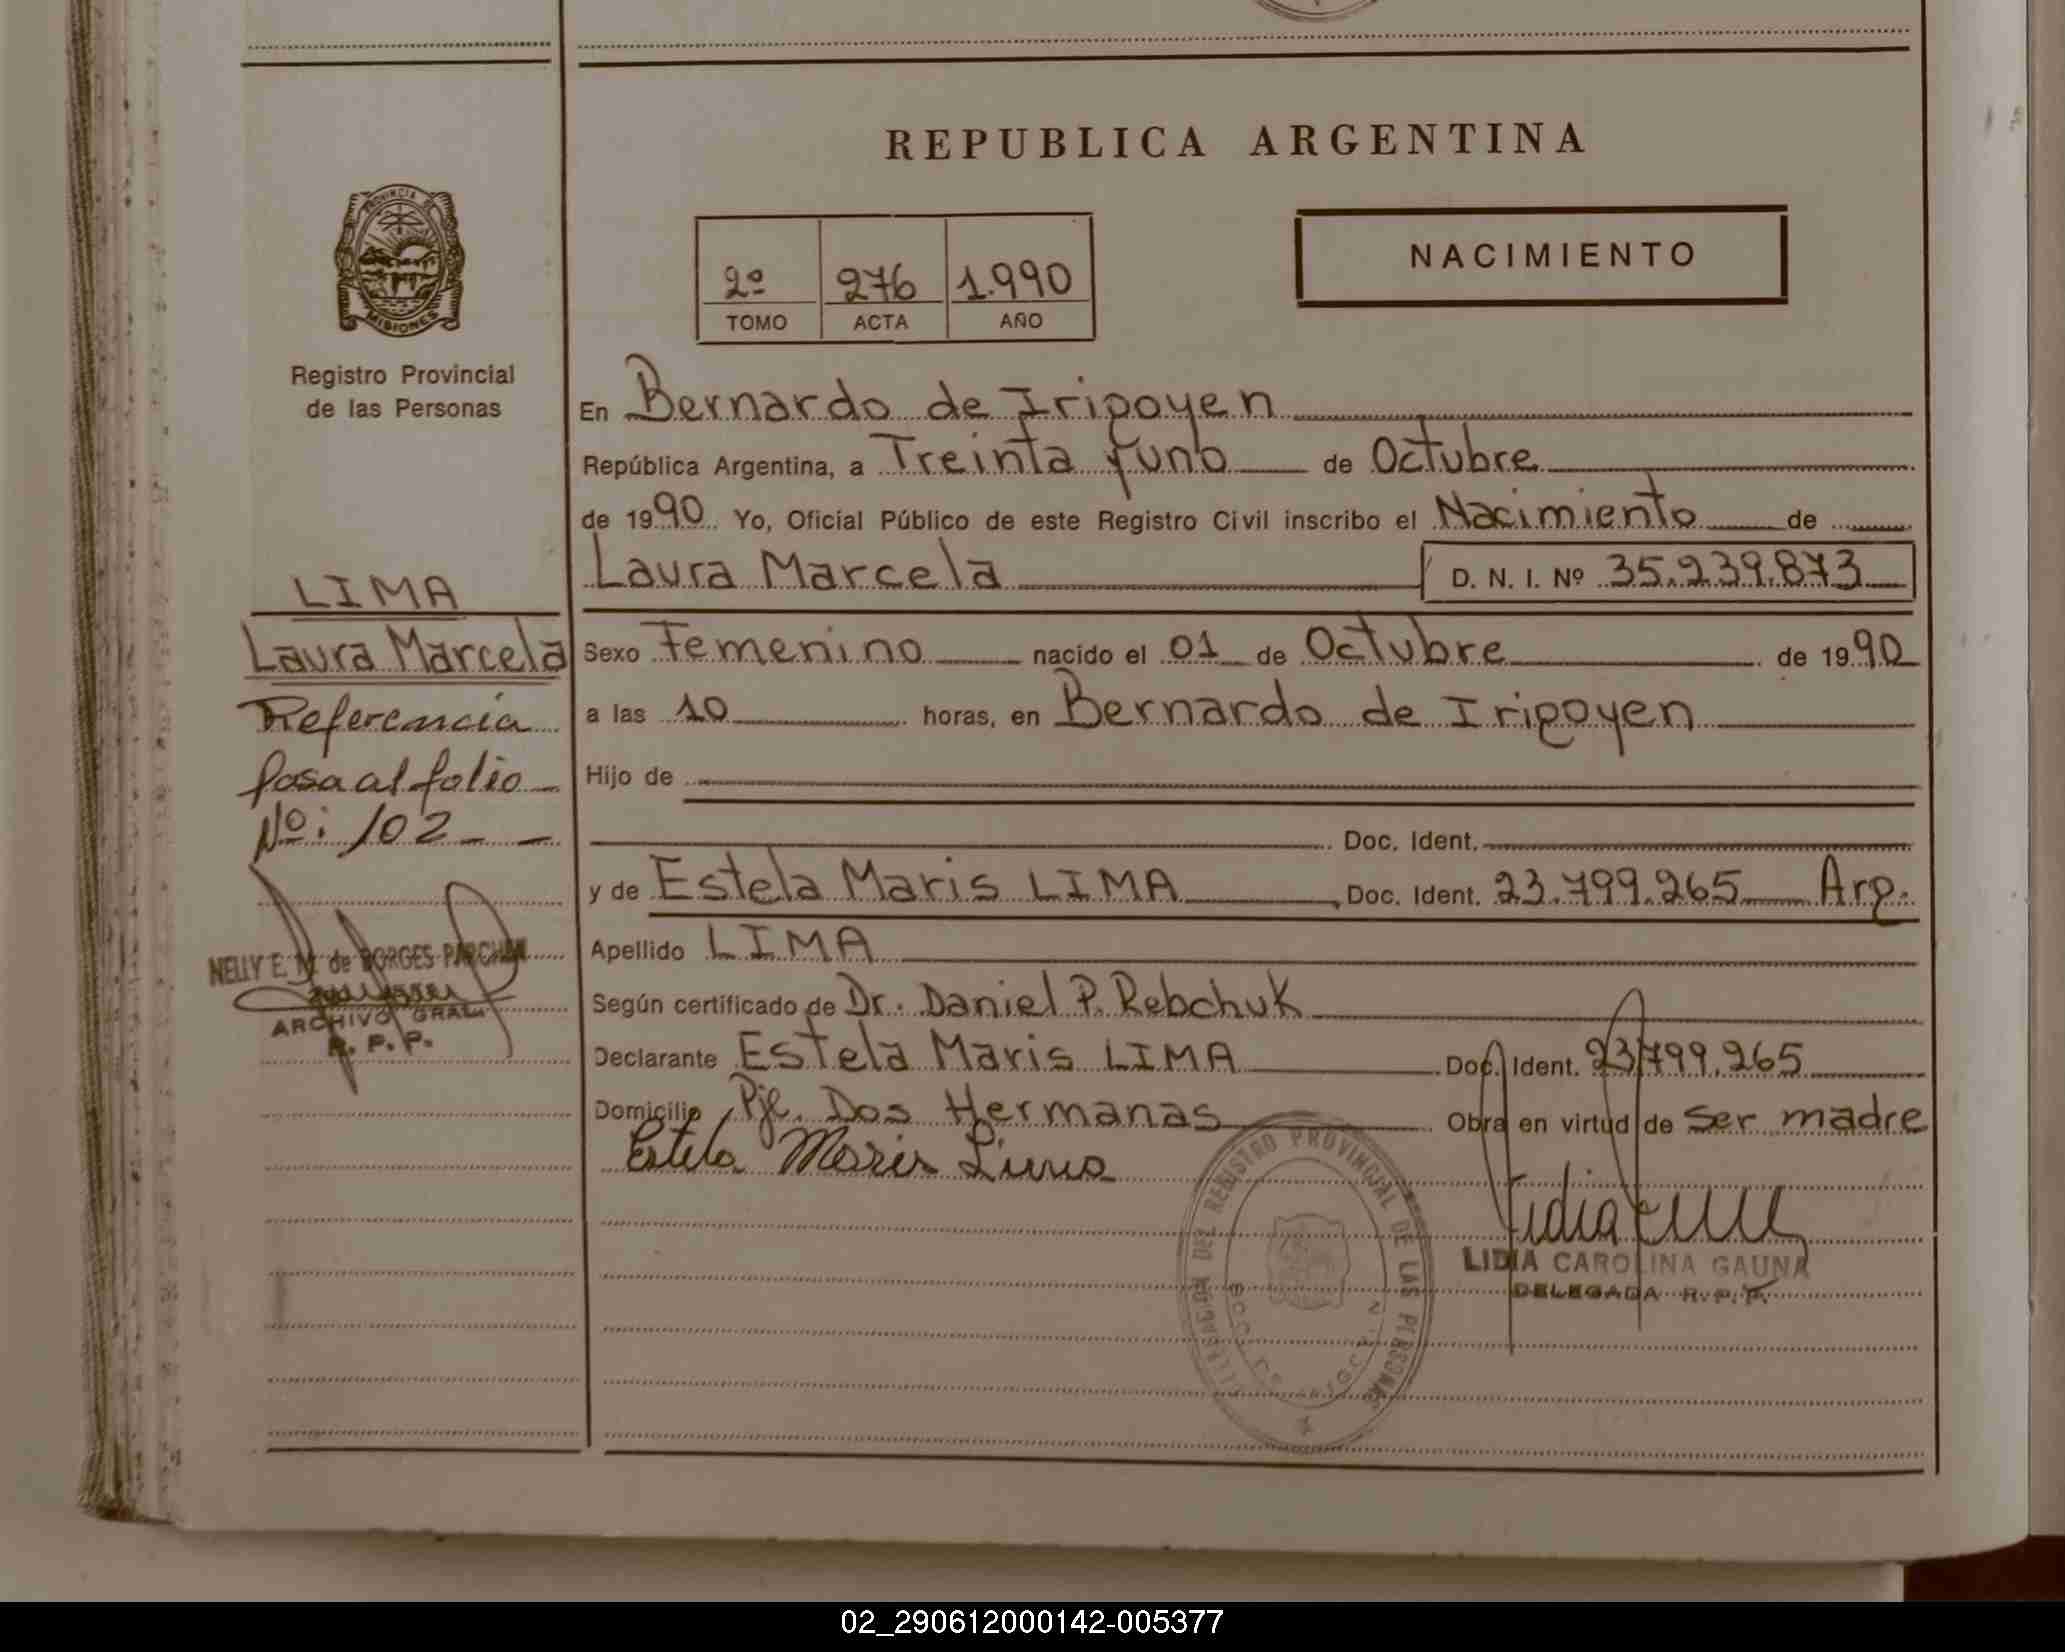 REPUBLICA ARGENTINA
PROVINCIA DE
MISIONES
Registro Provincial
de las Personas
2º 276 1.990
TOMO ACTA AÑO
NACIMIENTO
LIMA
Laura Marcela
Referencia
Pasa al folio
Nº: 102
NELLY E. M. de BORGES
ARCHIVO GRAL.
R. P. P.
En Bernardo de Irigoyen
República Argentina, a Treinta y uno de Octubre
de 1990 Yo, Oficial Público de este Registro Civil inscribo el Nacimiento de
Laura Marcela D. N. I. Nº 35.239.873
Sexo Femenino nacido el 01 de Octubre de 1990
a las 10 horas, en Bernardo de Irigoyen
Hijo de
Doc. Ident.
y de Estela Maris LIMA Doc. Ident. 23.799.265 Arg.
Apellido LIMA
Según certificado de Dr. Daniel P. Rebchuk
Declarante Estela Maris LIMA Doc. Ident. 23.799.265
Domicilio Pje. Dos Hermanas Obra en virtud de ser madre
Estela Maris Lima
DEL REGISTRO PROVINCIAL DE LAS PERSONAS
LIDIA CAROLINA GAUNA
DELEGADA R. P. P.
02_290612000142-005377